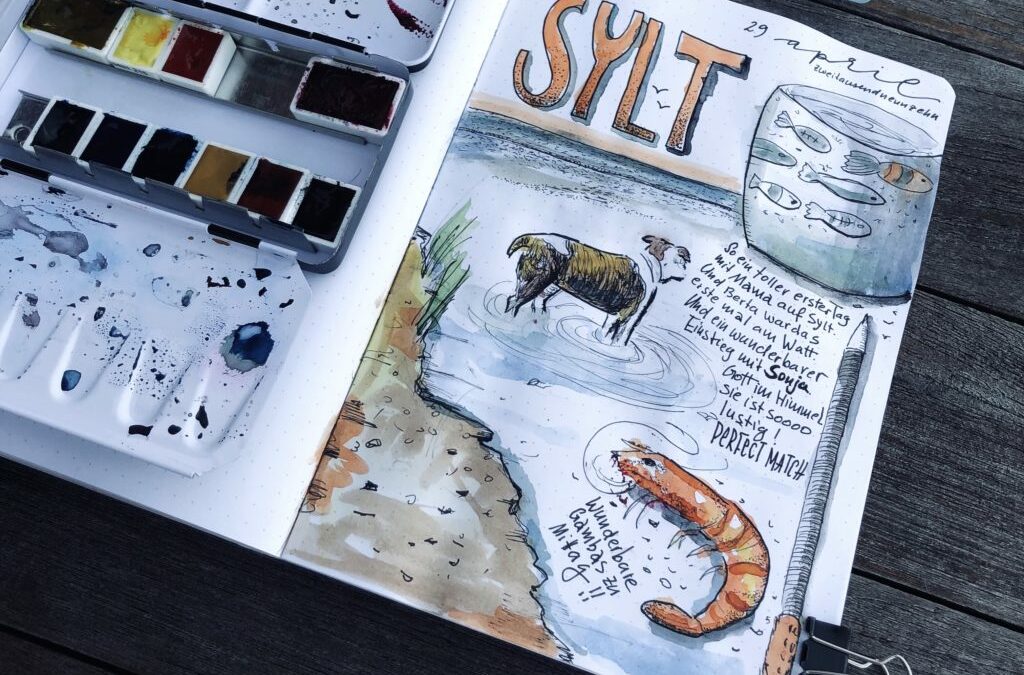 SYLT
29 aprie
zweitausendneunzehn
So ein toller erste Tag
mit Mama auf Sylt.
Und Berta war das
erste mal am Watt
Und ein wunderbarer
Einstieg mit Sonja
Gott im Himmel
Sie ist soooo
lustig!
PERFECT MATCH
Wunderbare
Gambas zu
Mitag!!